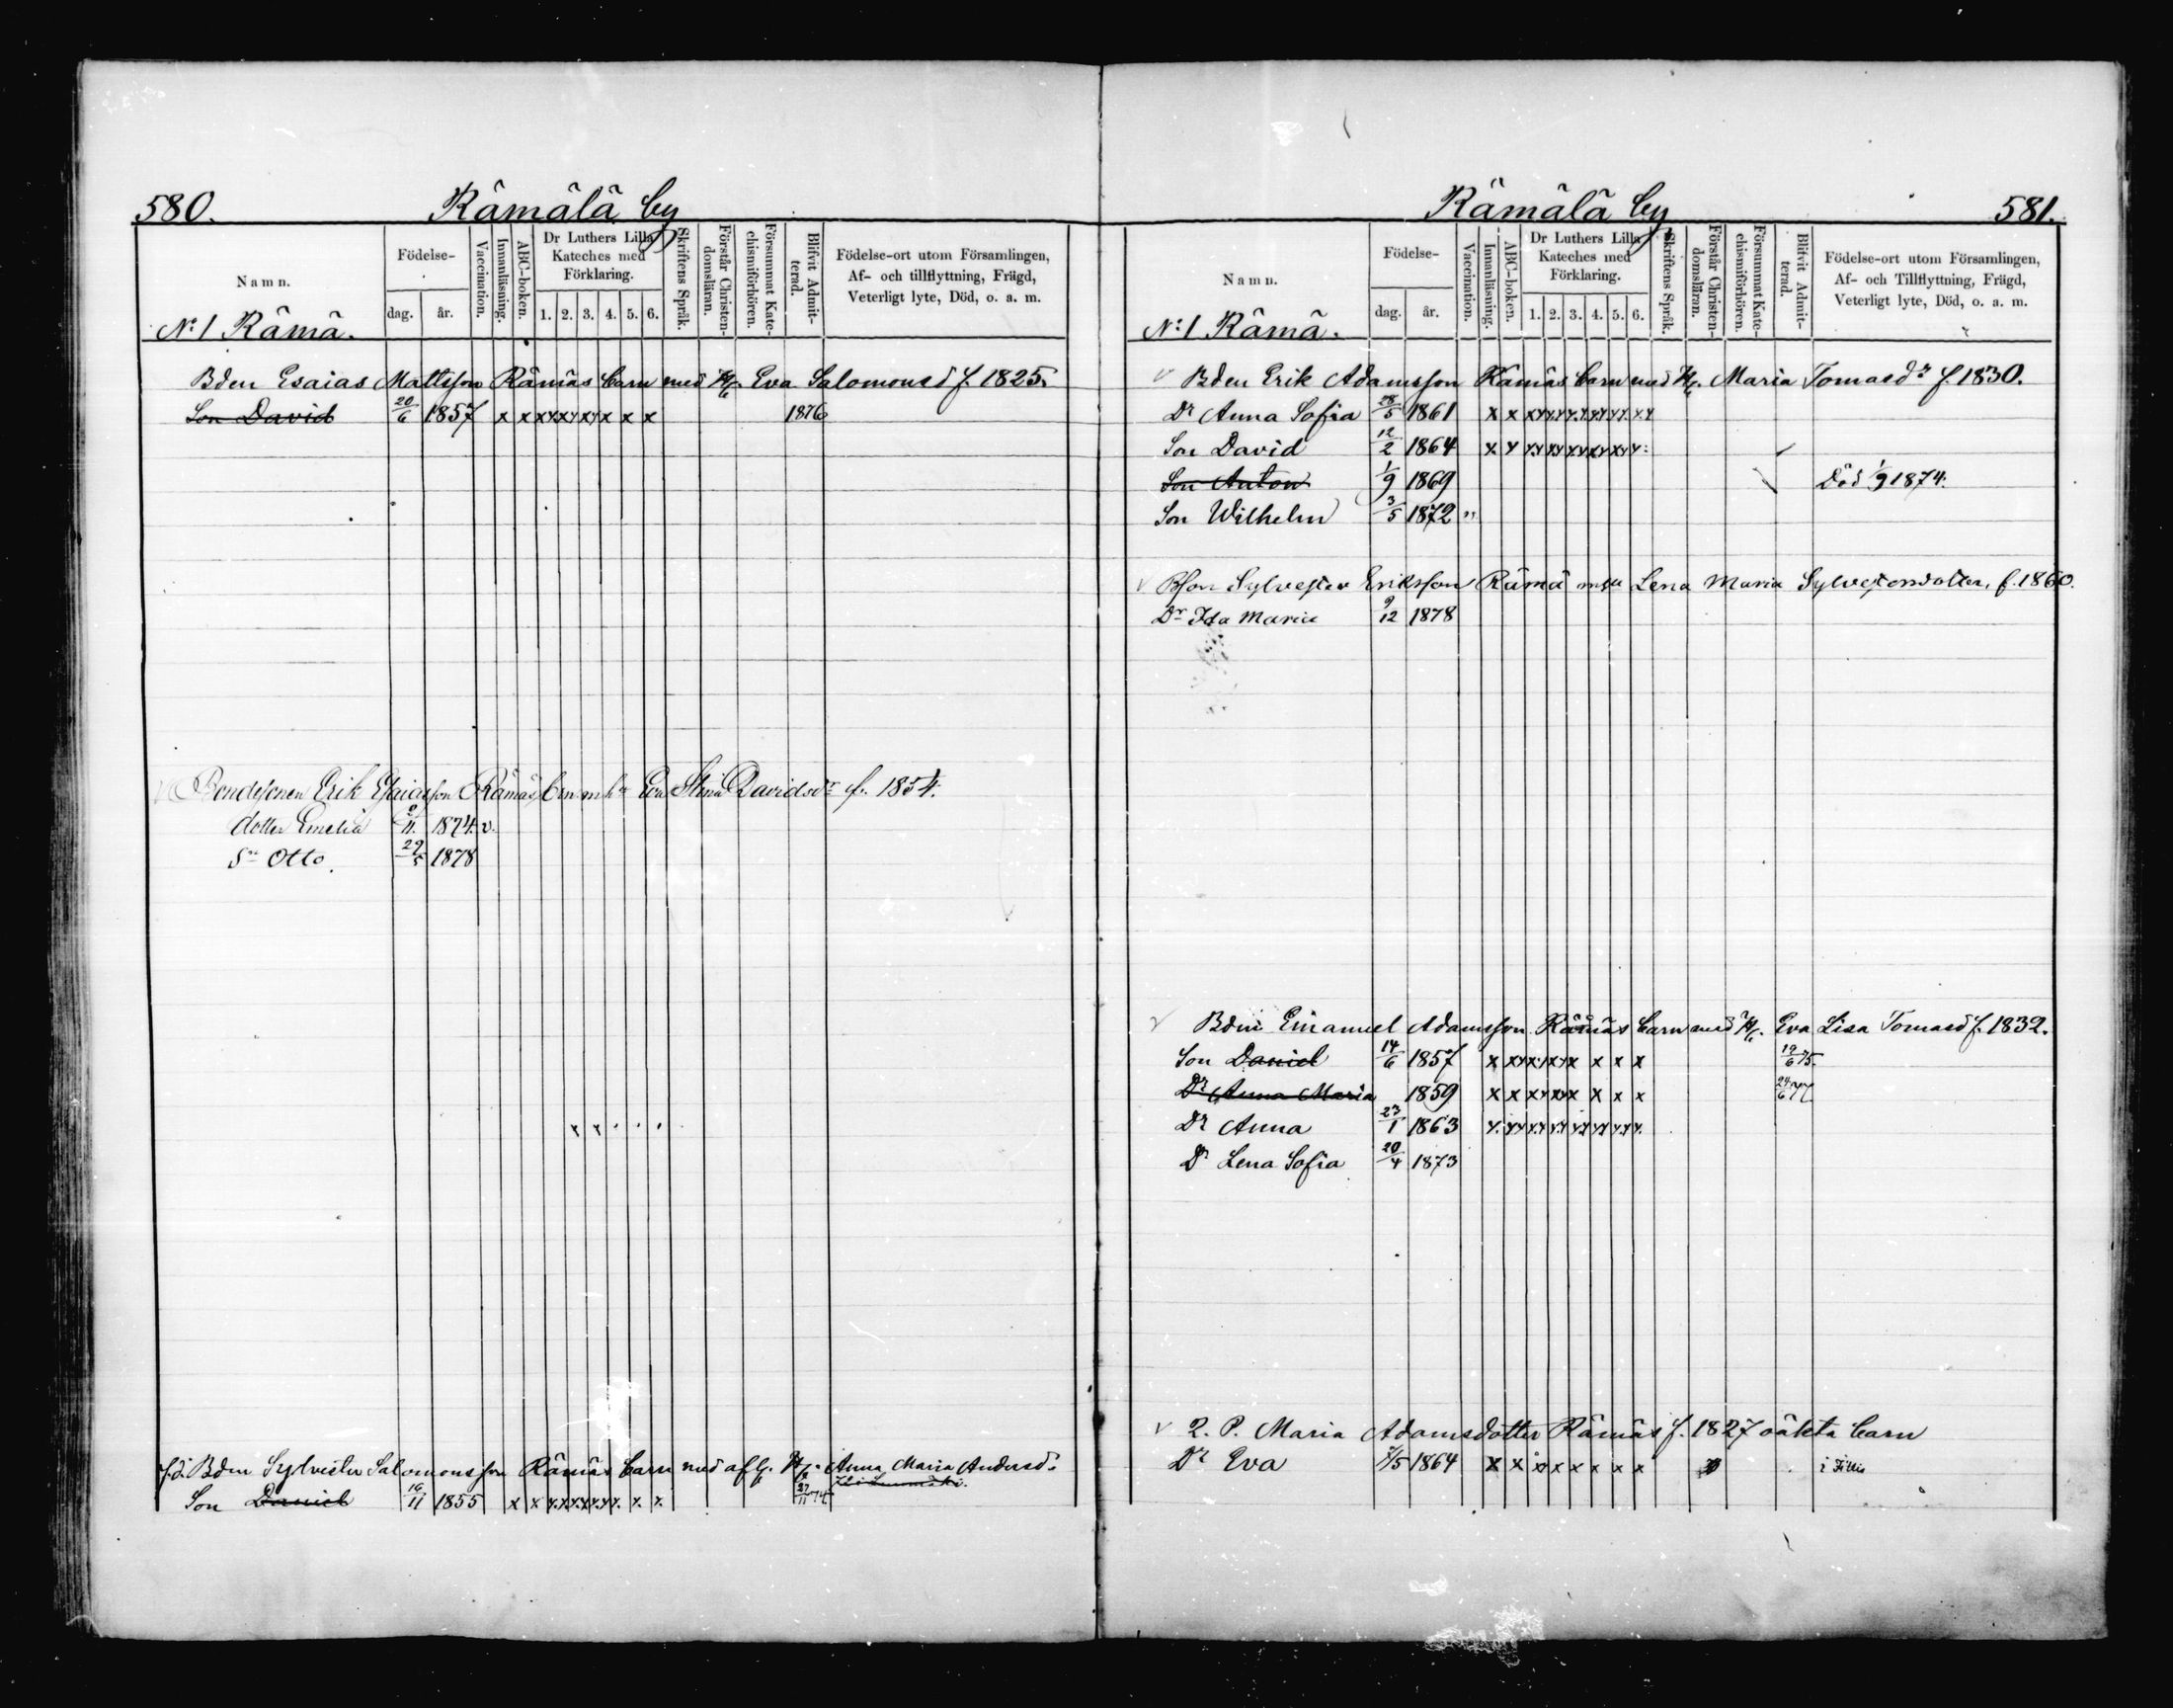 580.
Rämälä by
Namn.
Födelse-
dag.
år.
Vaccination.
Innanläsning.
ABC-boken.
Dr Luthers Lilla
Kateches med
Förklaring.
1. 2. 3. 4. 5. 6.
Skriftens Språk.
Förstår Christen-
domsläran.
Försummat Kate-
chismiförhören.
Blifvit Admit-
terad.
Födelse-ort utom Församlingen,
Af- och tillflyttning, Frägd,
Veterligt lyte, Död, o. a. m.
N:1 Rämä.
Bden Esaias Mattsson Rämäs barn med H. Eva Salomonsd f. 1825.
Son David 20/6 1857 x x xx xx xx x x x 1876
Bondesonen Erik Esaiasson Rämäs brn m hu Eva Stina Davidsdr f. 1854.
dotter Emelia 2/11. 1874. v.
Sn Otto. 29/5 1878
f.d. Bden Sylvester Salomonsson Rämäs barn med afl. H. Anna Maria Andersd:
Son Daniel 16/11 1855 x x x.x x.x x.x x. x. x. 27/11 74.
Rämälä by
581.
Namn.
Födelse-
dag.
år.
Vaccination.
Innanläsning.
ABC-boken.
Dr Luthers Lilla
Kateches med
Förklaring.
1. 2. 3. 4. 5. 6.
Skriftens Språk.
Förstår Christen-
domsläran.
Försummat Kate-
chismiförhören.
Blifvit Admit-
terad.
Födelse-ort utom Församlingen,
Af- och Tillflyttning, Frägd,
Veterligt lyte, Död, o. a. m.
N:1 Rämä.
v Bden Erik Adamsson Rämäs barn med H. Maria Tomasdr f. 1830.
Dr Anna Sofia 28/5 1861 x x xx xx xx xx xx xx
Son David 12/2 1864 x x xx xx xx xx xx x
Son Anton 1/9 1869 Död 1/9 1874.
Son Wilhelm 3/5 1872 "
v Bson Sylvester Eriksson Rämä m hu Lena Maria Sylvestersdotter, f. 1860.
Dr Ida Maria 9/12 1878
v Bden Emanuel Adamsson Rämäs barn med H. Eva Lisa Tomasd f. 1832.
Son Daniel 14/6 1857 x xx xx xx x x x 19/6 75.
Dr Anna Maria 1859 x x xx xx x x x 24/6 77
Dr Anna 23/1 1863 x. xx xx xx xx xx xx x.
Dr Lena Sofia 20/4 1873
v Q. P. Maria Adamsdotter Rämäs f. 1827 oäkta barn
Dr Eva 2/5 1864 x x x x x x x x